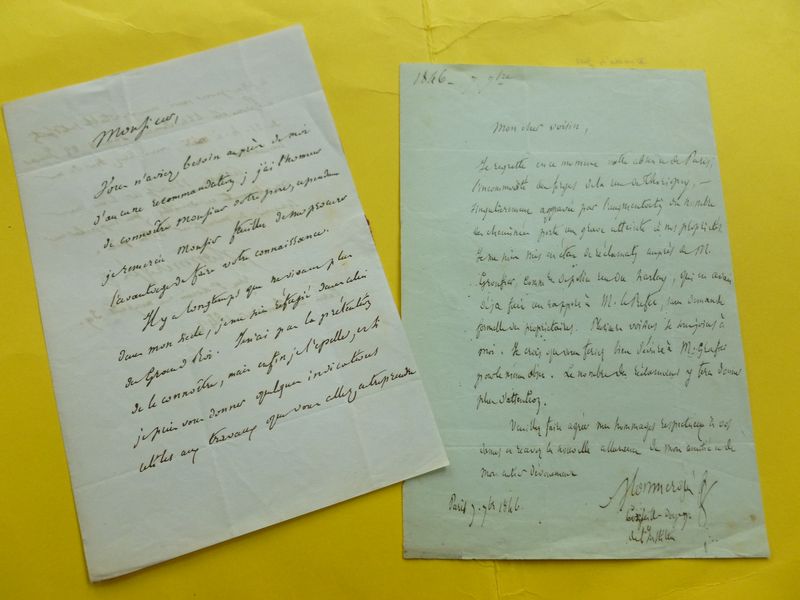 Monsieur,
Vous n'aviez besoin auprès de moi
d'aucune recommandation, j'ai l'honneur
de connoître Monsieur votre père, cependant
je remercie Monsieur de me procurer
l'avantage de faire votre connaissance.
Il y a longtemps que ne vivant plus
dans mon siècle, je me suis réfugié dans celui
du Grand Roi. Je n'ai pas la prétention
de le connoître, mais enfin je l'
je puis vous donner quelques indications
utiles aux travaux que vous allez entreprendre
1846 - 7 7bre
Mon cher voisin,
Je regrette en ce moment votre absence de Paris,
l'incommodité des forges de la rue de Thorigny,
singulièrement aggravée par l'augmentation du nombre
des cheminées porte une grave atteinte à nos propriétés
Je me suis mis en état de réclamation auprès de M.
rue du harlay, qui en avait
déjà fait un rapport à M. le Préfet, sur demande
formelle des propriétaires. Plusieurs voisins se sont joints à
moi. Je crois que vous feriez bien d'écrire à M.
pour le même objet. Le nombre des réclamans y fera donner
plus d'attention.
Veuillez faire agréer mes hommages respectueux à vos
dames et recevez la nouvelle assurance de mon amitié et de
mon entier dévouement
Monmerqué
de l'Institut
Paris 7 7bre 1846